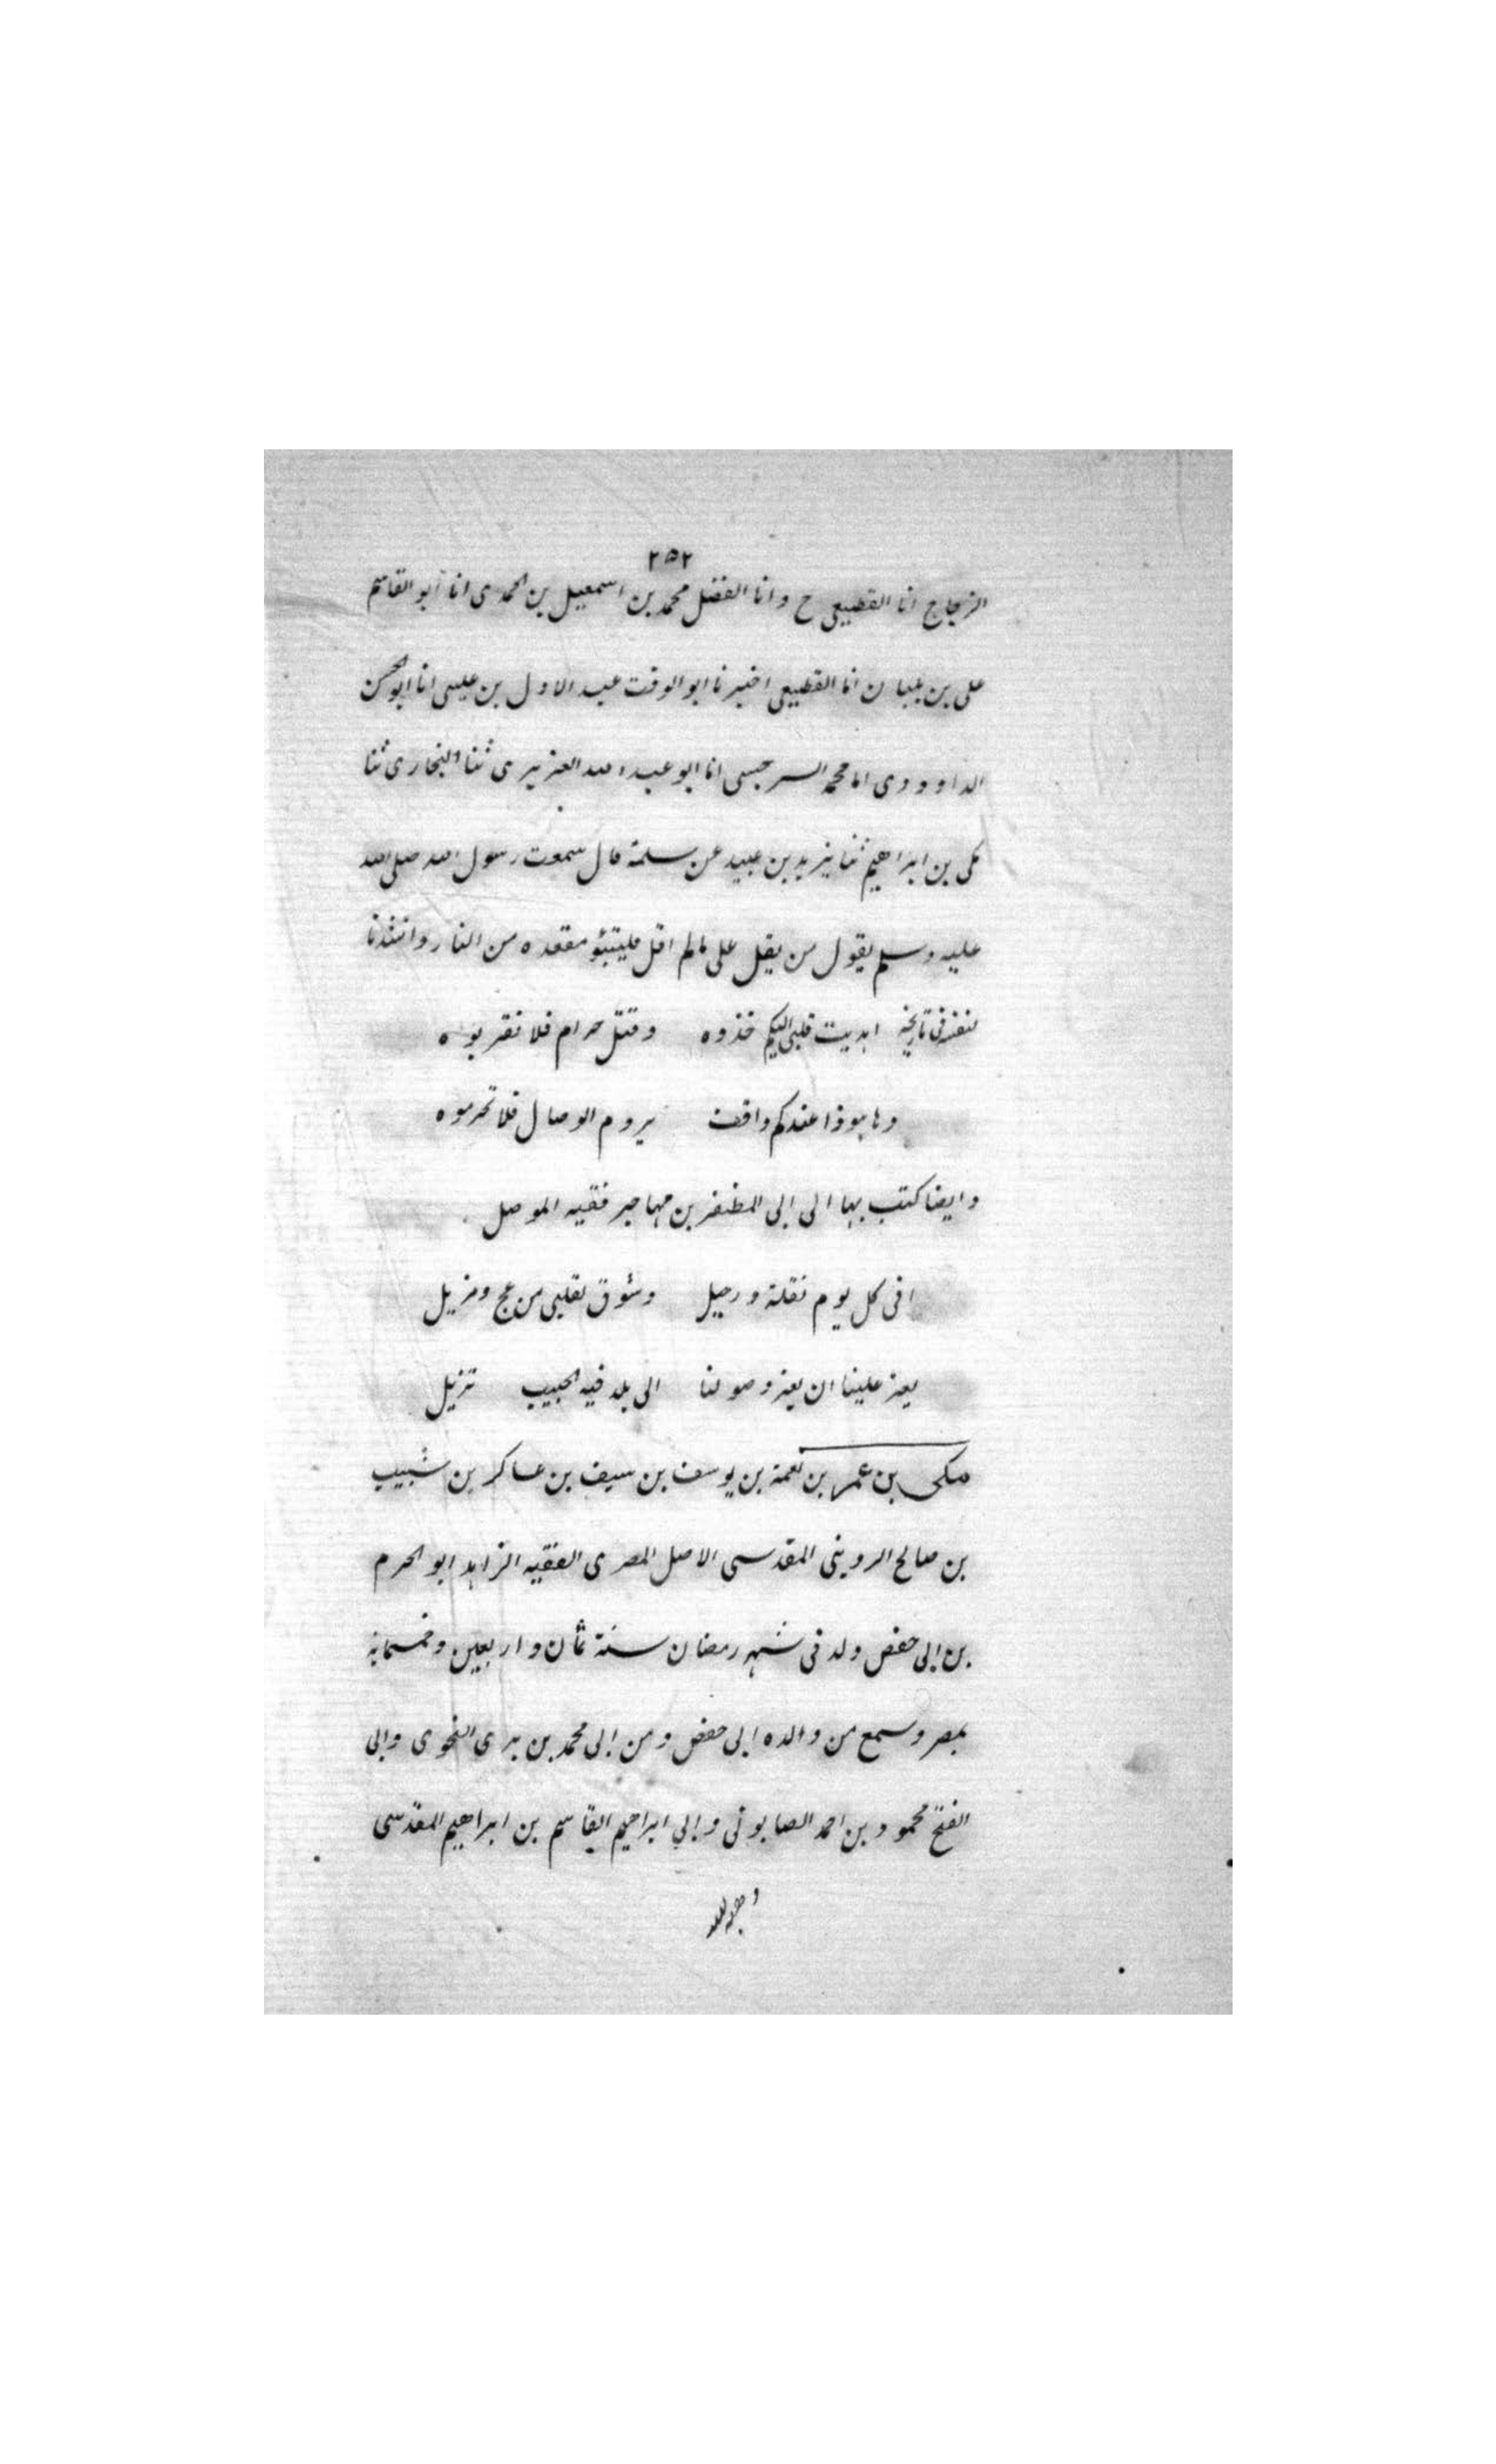 ٢٥٢
الزجاج انا القطيعى ح وانا الفضل محمد بن اسمعيل بن الحمدى انا ابو القاسم
على بن بلبان انا القطيعى اخبرنا ابو الوقت عبد الاول بن عيسى انا ابو الحسن
الداوودى انا محمد السرخسى انا ابو عبد الله العزيرى ثنا البخارى ثنا
مكى بن ابراهيم ثنا يزيد بن عبيد عن سلمة قال سمعت رسول الله صلى الله
عليه وسلم يقول من يقل على مالم اقل فليتبؤ مقعده من النار وانشدنا
لنفسه فى تاريخه اهديت قلبى اليكم خذوه وقتل حرام فلا تقربوه
وها هوذا عندكم واقف يروم الوصال فلا تحرموه
وايضا كتب بها الى ابى المظفر بن مهاجر فقيه الموصل
افى كل يوم نقلة ورحيل وشوق لقلبى مزعج ومزيل
يعز علينا ان يعز وصولنا الى بلد فيه الحبيب نزيل
مكى بن عمر بن نعمة بن يوسف بن سيف بن عساكر بن شبيب
بن صالح الروينى المقدسى الاصل المصرى الفقيه الزاهد ابو الحرم
بن ابى حفص ولد فى شهر رمضان سنة ثمان واربعين وخمسمائة
بمصر وسمع من والده ابى حفص ومن ابى محمد بن برى النحوى وابى
الفتح محمود بن احمد الصابونى وابى ابراهيم القاسم بن ابراهيم المقدسى